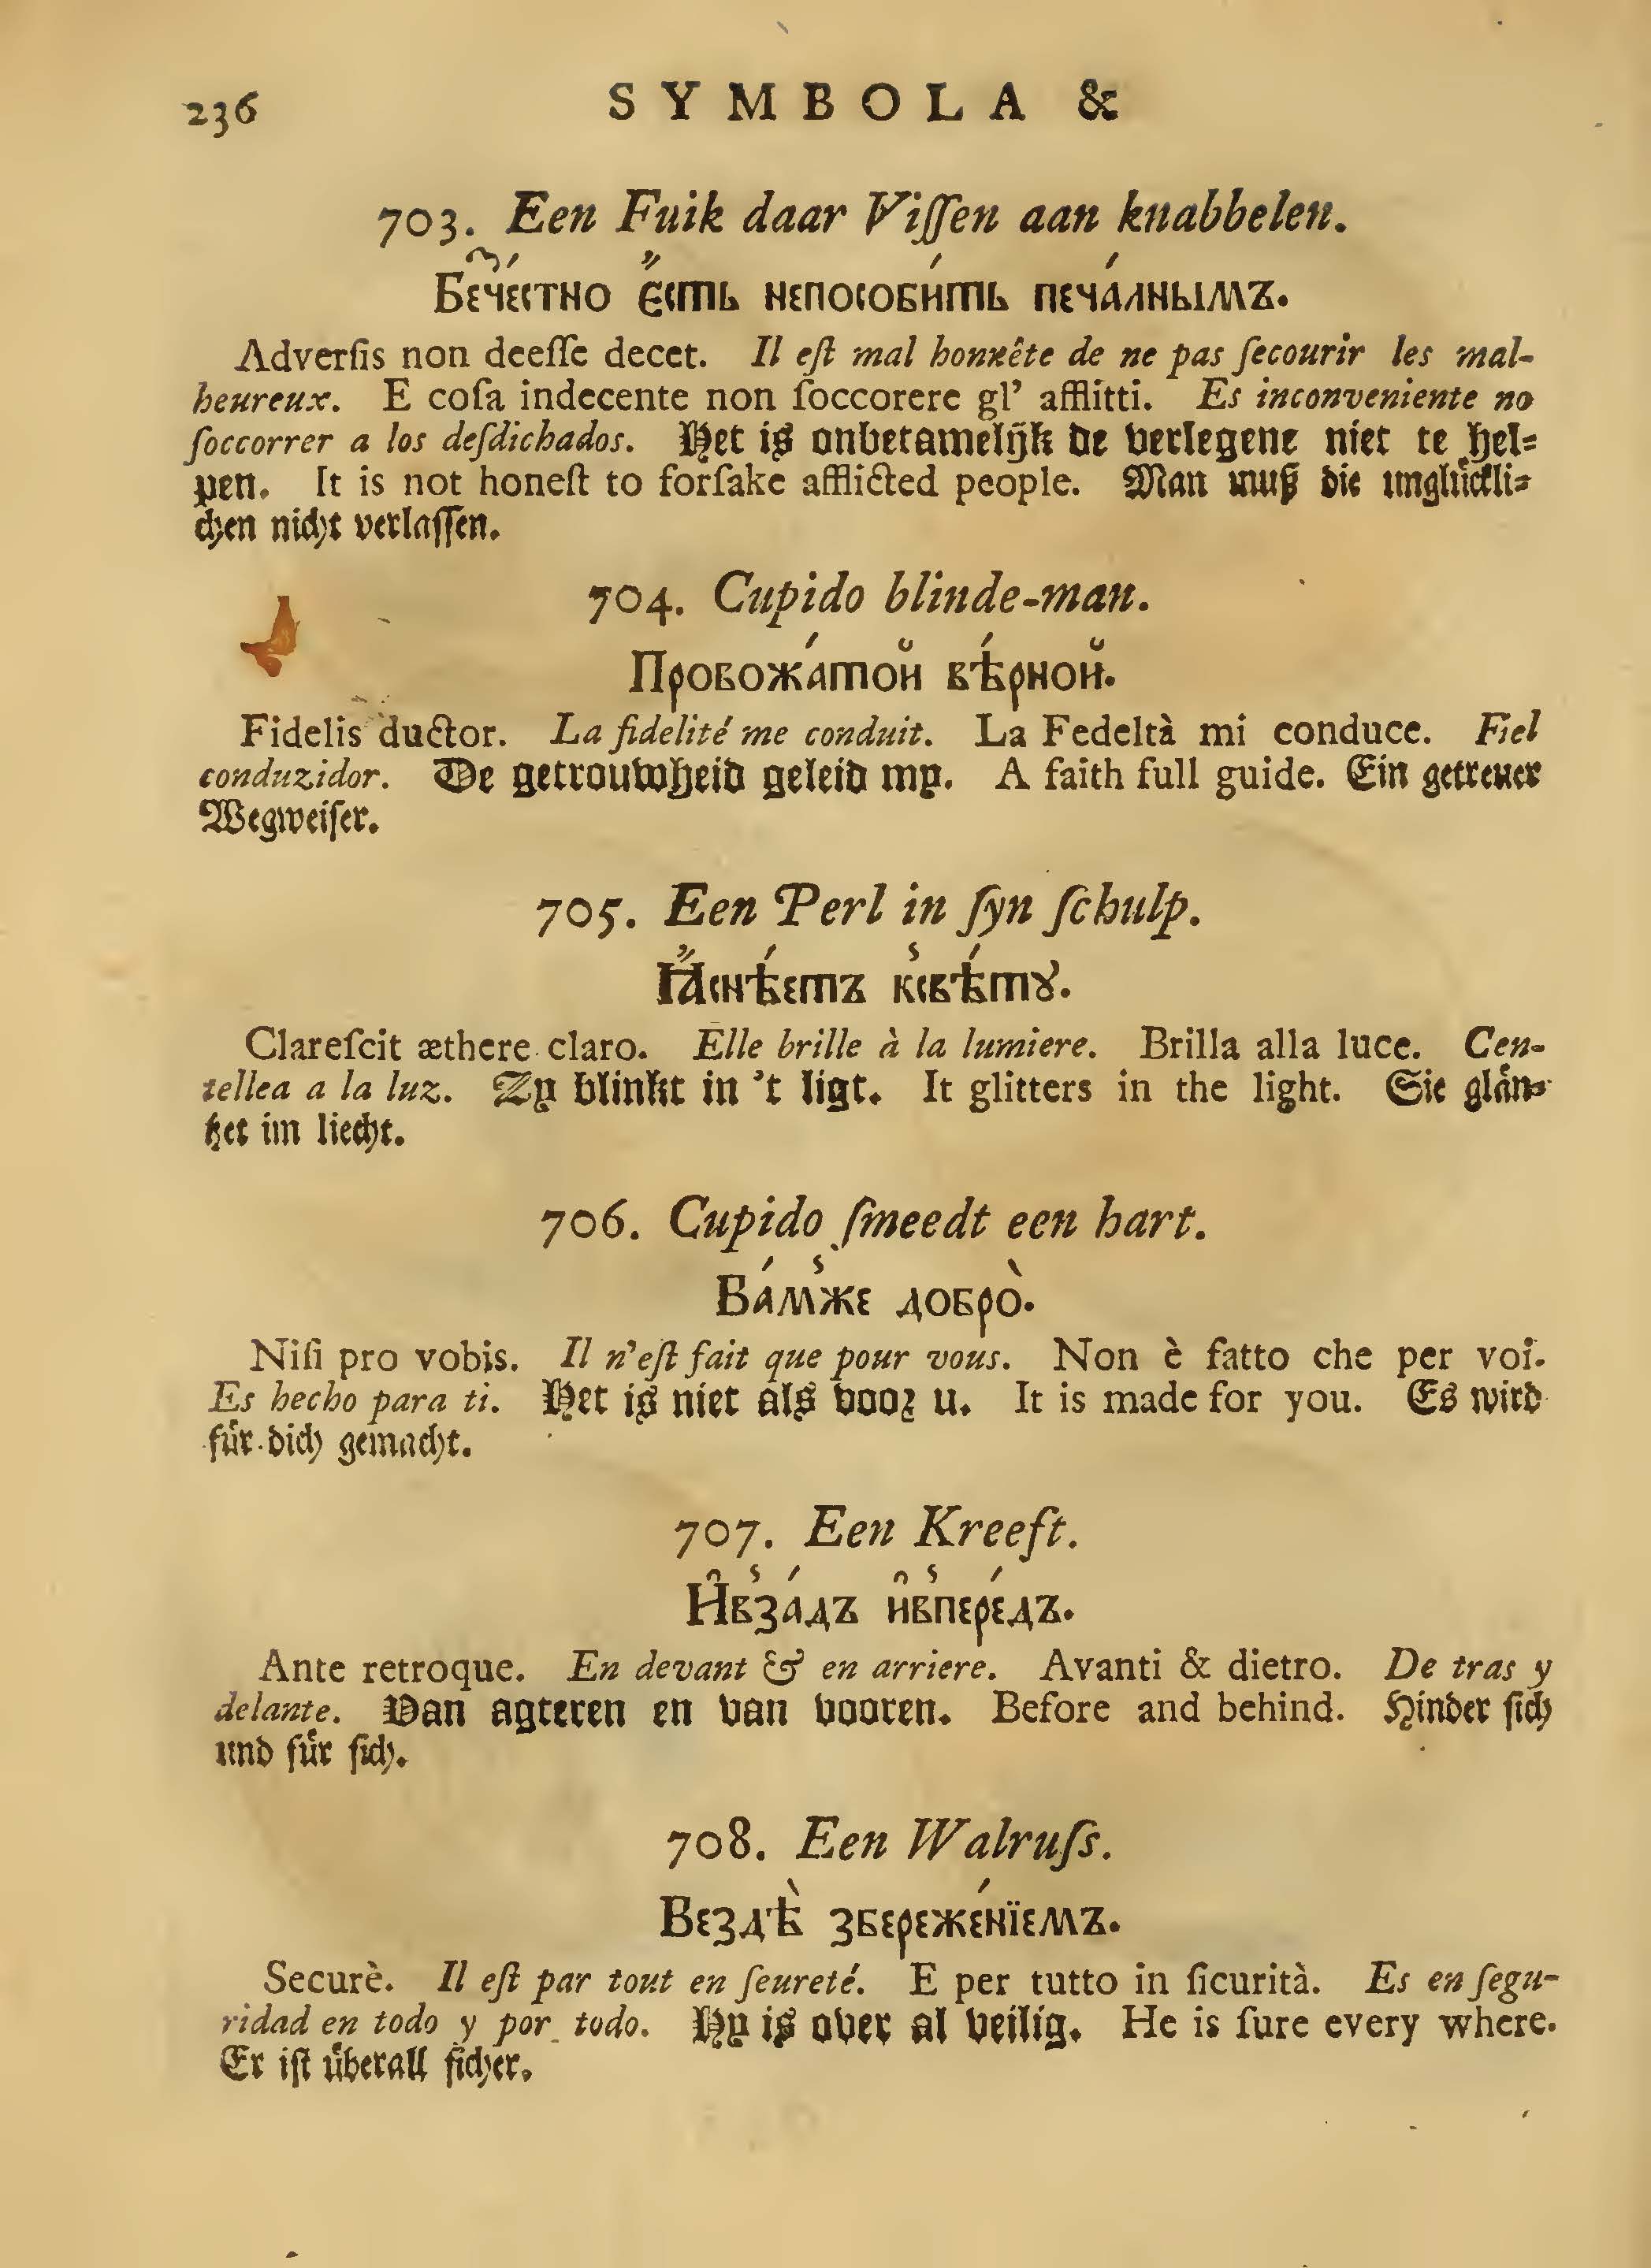 236 SYMBOLA &
703. Een Fuik daar Viſſen aan knabbelen.
Бечⷭ҇е́стно є҆́сть непособи́ть печа́лнымъ.
Adverſis non deeſſe decet. Il eſt mal honnête de ne pas ſecourir les mal-
heureux. E coſa indecente non ſoccorere gl’ afflitti. Es inconveniente no
ſoccorrer a los deſdichados. Het is onbetamelijk de verlegene niet te hel-
pen. It is not honeſt to forſake afflicted people. Man muß die unglückli-
chen nicht verlaſſen.
704. Cupido blinde-man.
Провожа́той вѣ́рной.
Fidelis ductor. La fidelité me conduit. La Fedeltà mi conduce. Fiel
conduzidor. De getrouwheid geleid my. A faith full guide. Ein getreuer
Wegweiſer.
705. Een Perl in ſyn ſchulp.
Ꙗ҆́снѣ́етъ к̾свѣ́тꙋ.
Clareſcit æthere claro. Elle brille à la lumiere. Brilla alla luce. Cen-
tellea a la luz. Zy blinkt in ’t ligt. It glitters in the light. Sie glån-
ßet im liecht.
706. Cupido ſmeedt een hart.
Ва́м̾же добро̀.
Niſi pro vobis. Il n’eſt fait que pour vous. Non è fatto che per voi.
Es hecho para ti. Het is niet als voor u. It is made for you. Es wird
fůr dich gemacht.
707. Een Kreeft.
И҆в̾за́дъ и҆в̾пере́дъ.
Ante retroque. En devant & en arriere. Avanti & dietro. De tras y
delante. Van agteren en van vooren. Before and behind. Hinder ſich
und fůr ſich.
708. Een Walruſs.
Вездѣ̀ збереже́нїемъ.
Securè. Il eſt par tout en ſeureté. E per tutto in ſicurità. Es en ſegu-
ridad en todo y por todo. Hy is over al veilig. He is ſure every where.
Er iſt ůberall ſicher.